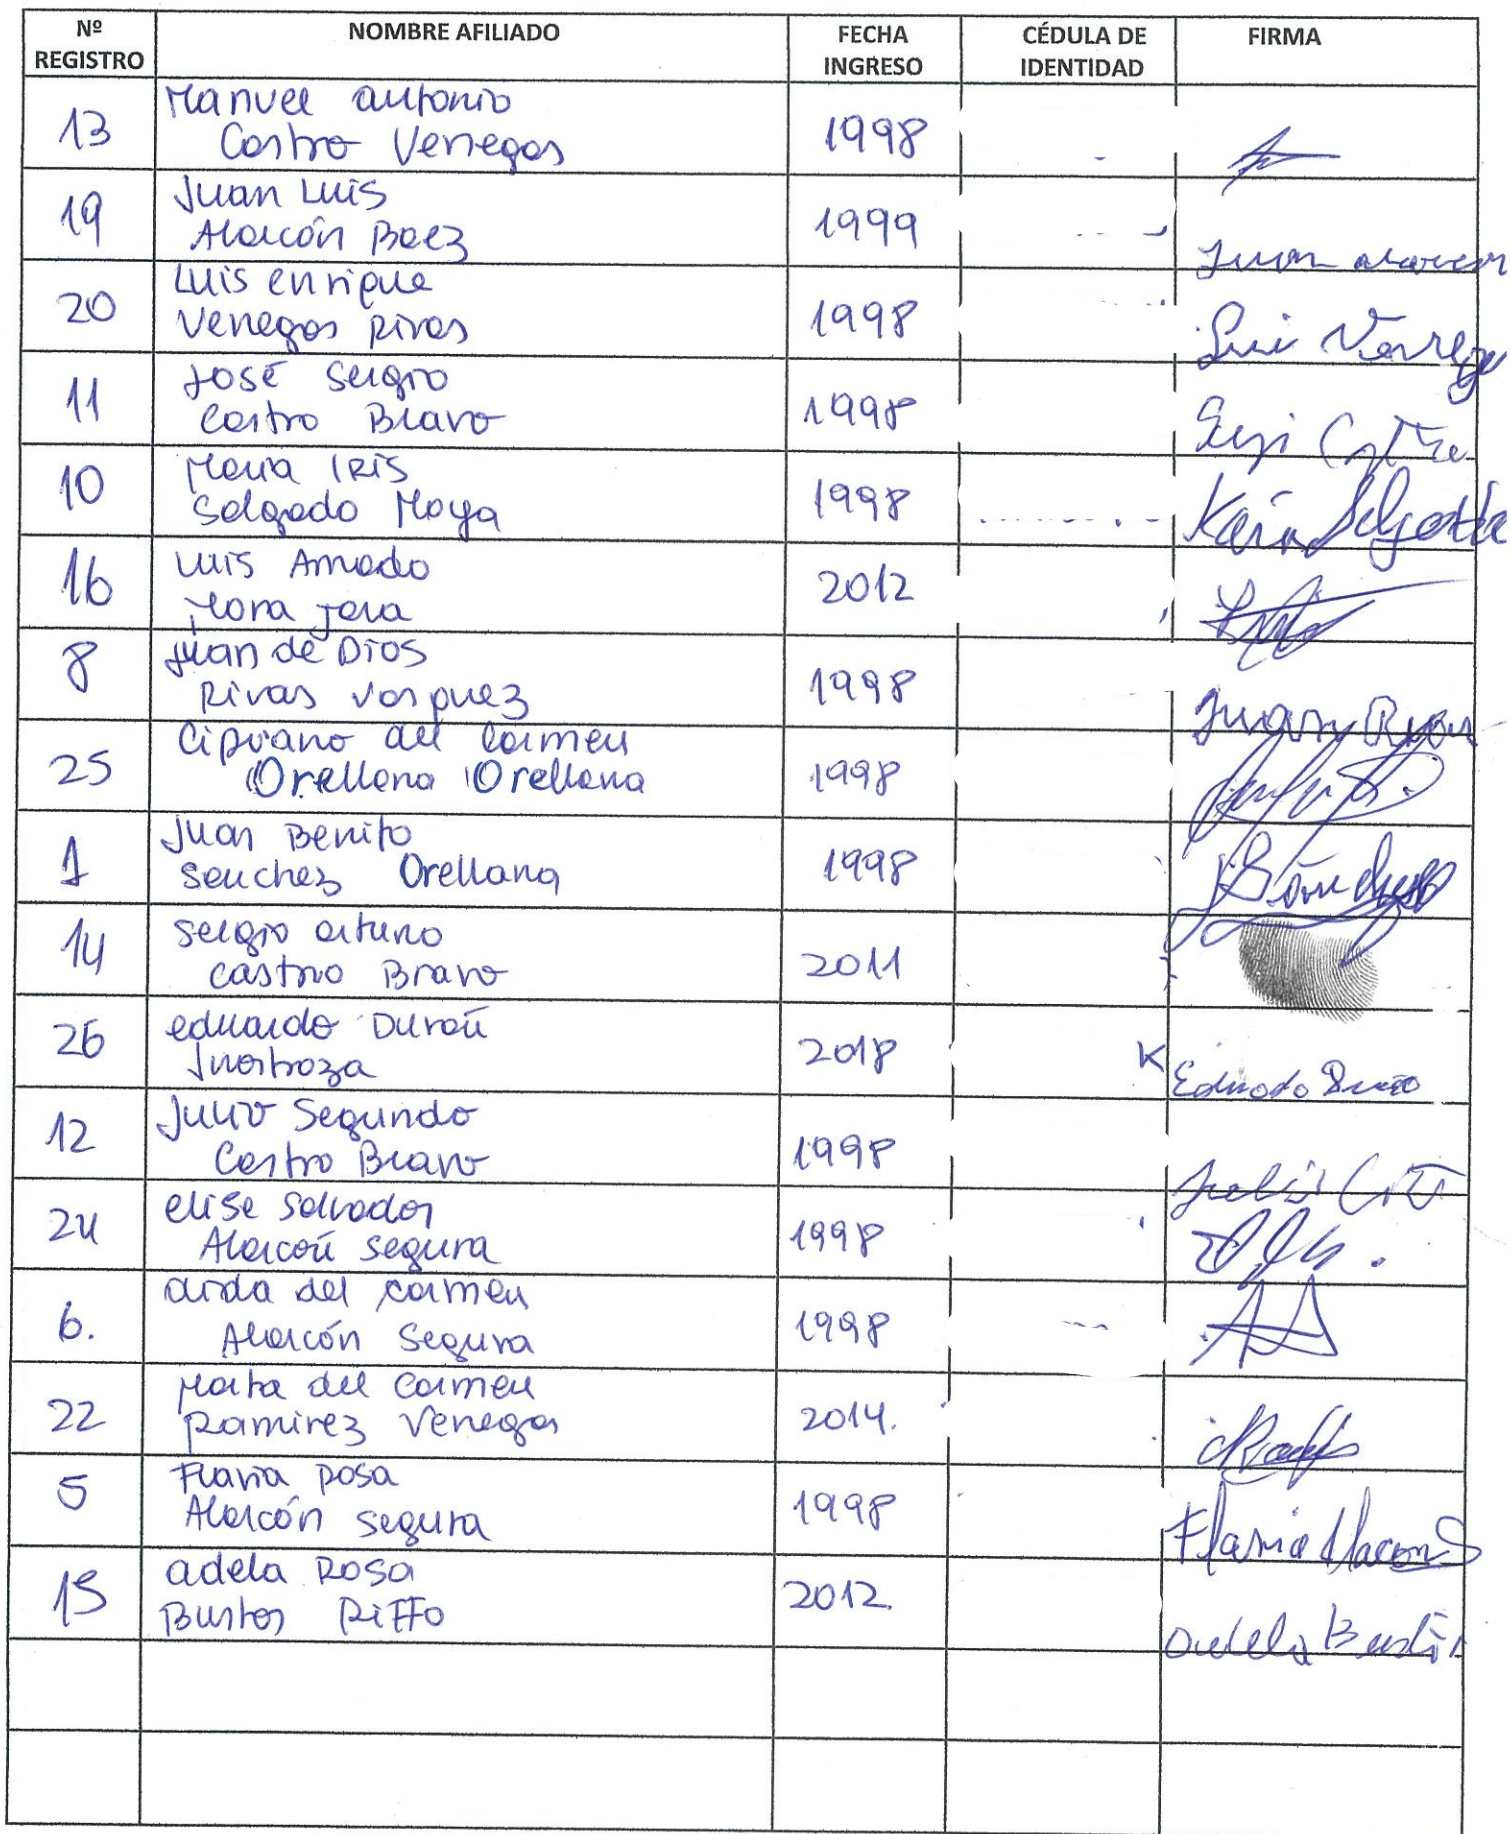 Nº REGISTRO NOMBRE AFILIADO FECHA INGRESO CÉDULA DE IDENTIDAD FIRMA
Manuel antonio
13 Castro Venegas 1998
Juan Luis
19 Alarcón Baez 1999 Juan alarcon
Luis enrique
20 Venegas Rivas 1998 Luis Venegas
José Sergio
11 Castro Bravo 1998
Maria IRIS
10 Salgado Moya 1998
Luis Amado
16 Mora Jara 2012
Juan de Dios
8 Rivas Vasquez 1998 Juan Rivas
Cipriano del Carmen
25 Orellana Orellana 1998
Juan Benito
1 Sanchez Orellana 1998 JBSánchez
Sergio arturo
14 Castro Bravo 2011
eduardo Durán
26 Inostroza 2018 K Eduardo Durán
Julio Segundo
12 Castro Bravo 1998
elise Salvador
24 Alarcón Segura 1998
aida del carmen
6. Alarcón Segura 1998
Marta del Carmen
22 Ramirez Venegas 2014.
Flavia Rosa
5 Alarcón Segura 1998 Flavia Alarcon S
adela Rosa
15 Bustos RiFFo 2012. adela Bustos